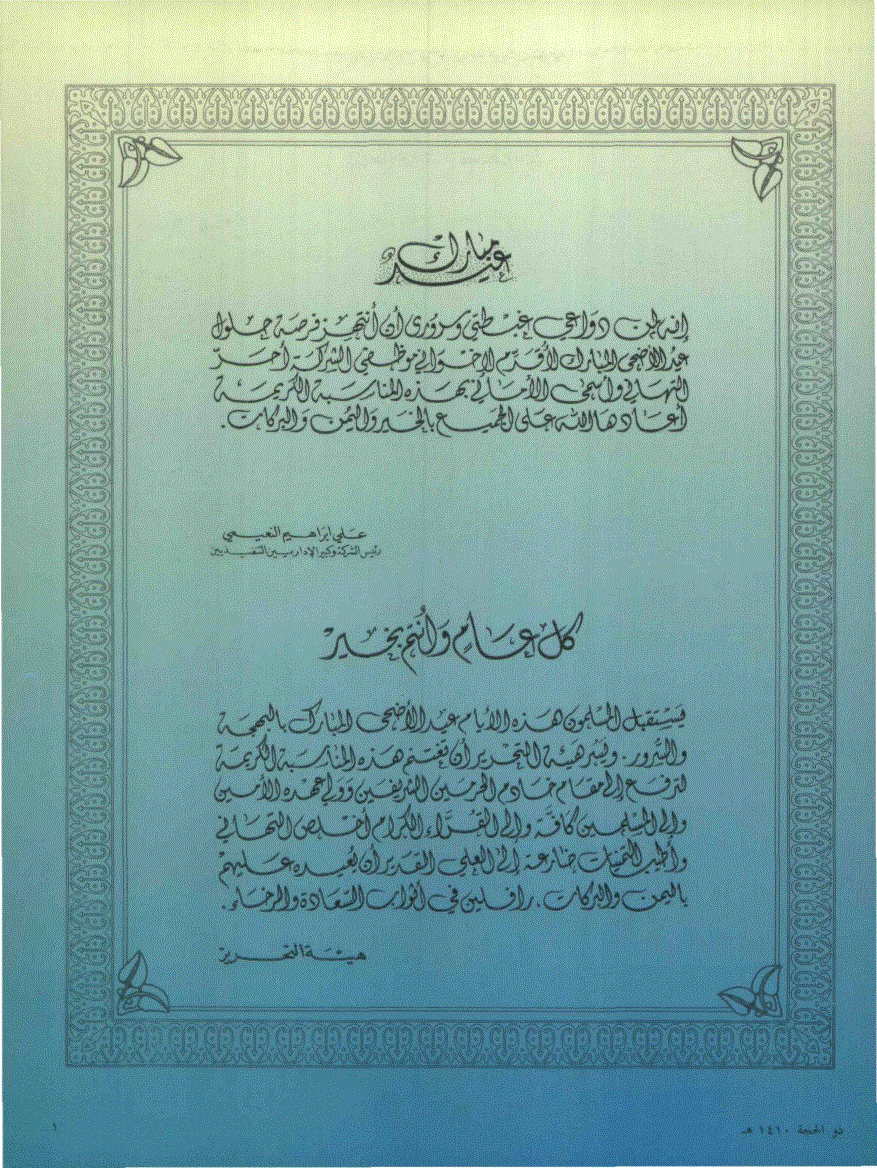 عيد مبارك
إنه لمن دواعي غبطتي وسروري أن أنتهز فرصة حلول
عيد الأضحى المبارك لأقدم لإخواني موظفي الشركة أحر
التهاني وأسمى الأماني بهذه المناسبة الكريمة
أعادها الله على الجميع بالخير واليمن والبركات.
علي ابراهيم النعيمي
رئيس الشركة وكبير الإداريين التنفيذيين
كل عام وأنتم بخير
يستقبل المسلمون هذه الأيام عيد الأضحى المبارك بالبهجة
والسرور. ويسر هيئة التحرير أن تغتنم هذه المناسبة الكريمة
لترفع إلى مقام خادم الحرمين الشريفين وولي عهده الأمين
وإلى المسلمين كافة وإلى القراء الكرام أخلص التهاني
وأطيب التمنيات ضارعة إلى العلي القدير أن يعيده عليهم
باليمن والبركات، رافلين في أثواب السعادة والرخاء.
هيئة التحرير
ذو الحجة ١٤١٠ هـ
١